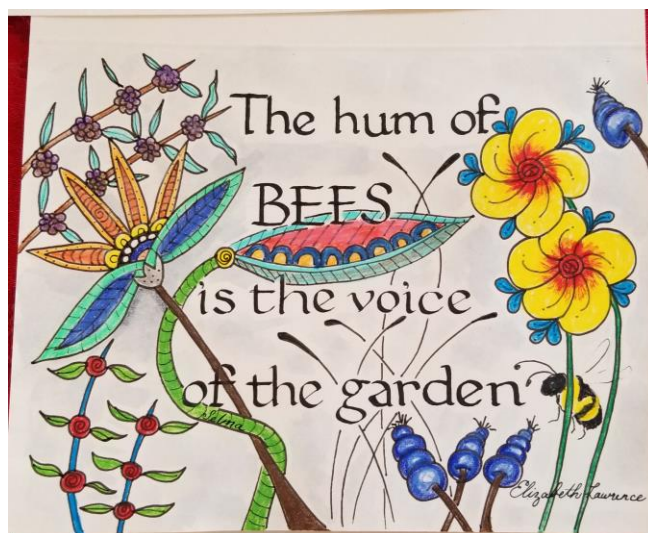 The hum of
BEES
is the voice
of the garden
Selma
Elizabeth Lawrence